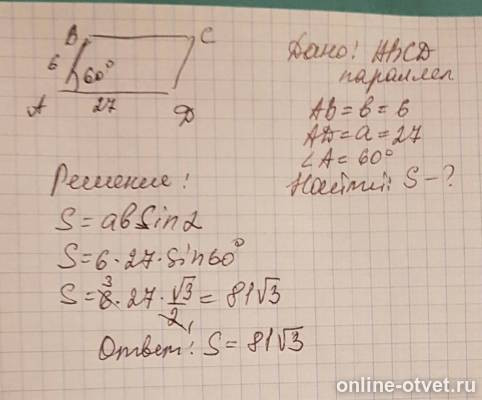 B C
6 60°
A 27 D
Дано: ABCD
параллел
AB = b = 6
AD = a = 27
∠A = 60°
Найти: S - ?
Решение:
S = ab sin α
S = 6 · 27 · sin 60°
S = 6 3 · 27 · √3/2 1 = 81√3
Ответ: S = 81√3
online-otvet.ru